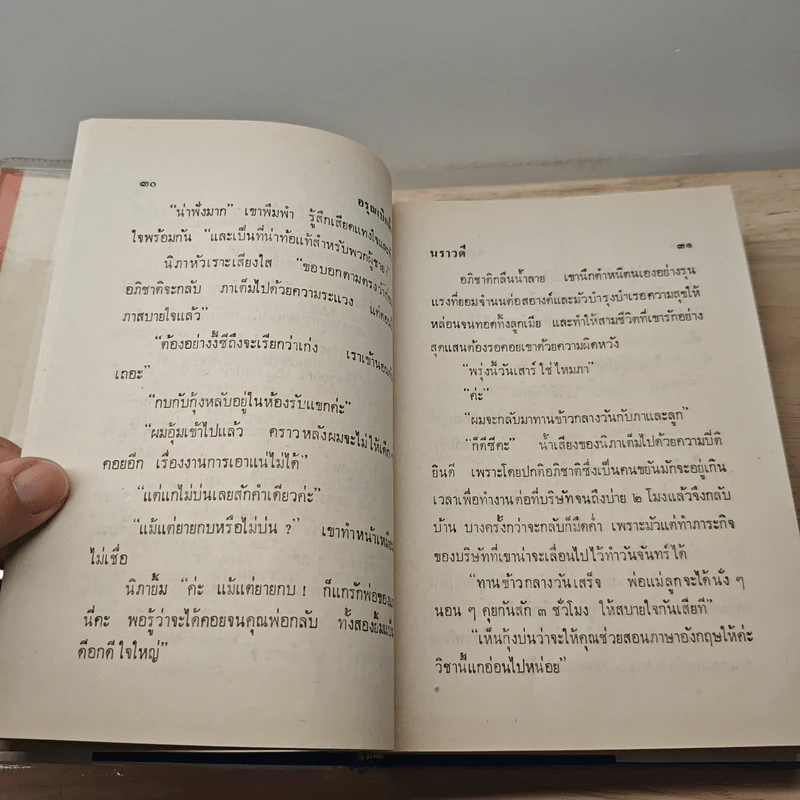 ๓๐
“น่าฟังมาก” เขาพึมพำ รู้สึกเสียดแทงใจและ
ใจพร้อมกัน “และเป็นที่น่าท้อแท้สำหรับพวกผู้ชาย
นิภาหัวเราะเสียงใส “ขอบอกตามตรง
อภิชาติจะกลับ ภาเต็มไปด้วยความระแวง
ภาสบายใจแล้ว”
“ต้องอย่างงี้ซีถึงจะเรียกว่าเก่ง เราเข้านอน
เถอะ”
“กบกับกุ้งหลับอยู่ในห้องรับแขกค่ะ”
“ผมอุ้มเข้าไปแล้ว คราวหลังผมจะไม่ให้เด็ก
คอยอีก เรื่องงานการเอาแน่ไม่ได้”
“แต่แกไม่บ่นเลยสักคำเดียวค่ะ”
“แม้แต่ยายกบหรือไม่บ่น ?” เขาทำหน้า
ไม่เชื่อ
นิภายิ้ม “ค่ะ แม้แต่ยายกบ ! ก็แกรักพ่อ
นี่คะ พอรู้ว่าจะได้คอยจนคุณพ่อกลับ ทั้งสอง
ดีอกดีใจใหญ่”
นราวดี
๓๑
อภิชาติกลืนน้ำลาย เขานึกตำหนิตนเองอย่างรุน
แรงที่ยอมจำนนต่อสอางค์และมัวบำรุงบำเรอความสุขให้
หล่อนจนทอดทิ้งลูกเมีย และทำให้สามชีวิตที่เขารักอย่าง
สุดแสนต้องรอคอยเขาด้วยความผิดหวัง
“พรุ่งนี้วันเสาร์ ใช่ไหมภา”
“ค่ะ”
“ผมจะกลับมาทานข้าวกลางวันกับภาและลูก”
“ก็ดีซีคะ” น้ำเสียงของนิภาเต็มไปด้วยความปีติ
ยินดี เพราะโดยปกติอภิชาติซึ่งเป็นคนขยันมักจะอยู่เกิน
เวลาเพื่อทำงานต่อที่บริษัทจนถึงบ่าย ๒ โมงแล้วจึงกลับ
บ้าน บางครั้งกว่าจะกลับก็มืดค่ำ เพราะมัวแต่ทำภาระกิจ
ของบริษัทที่เขาน่าจะเลื่อนไปไว้ทำวันจันทร์ได้
“ทานข้าวกลางวันเสร็จ พ่อแม่ลูกจะได้นั่ง ๆ
นอน ๆ คุยกันสัก ๓ ชั่วโมง ให้สบายใจกันเสียที”
“เห็นกุ้งบ่นว่าจะให้คุณช่วยสอนภาษาอังกฤษให้ค่ะ
วิชานี้แกอ่อนไปหน่อย”